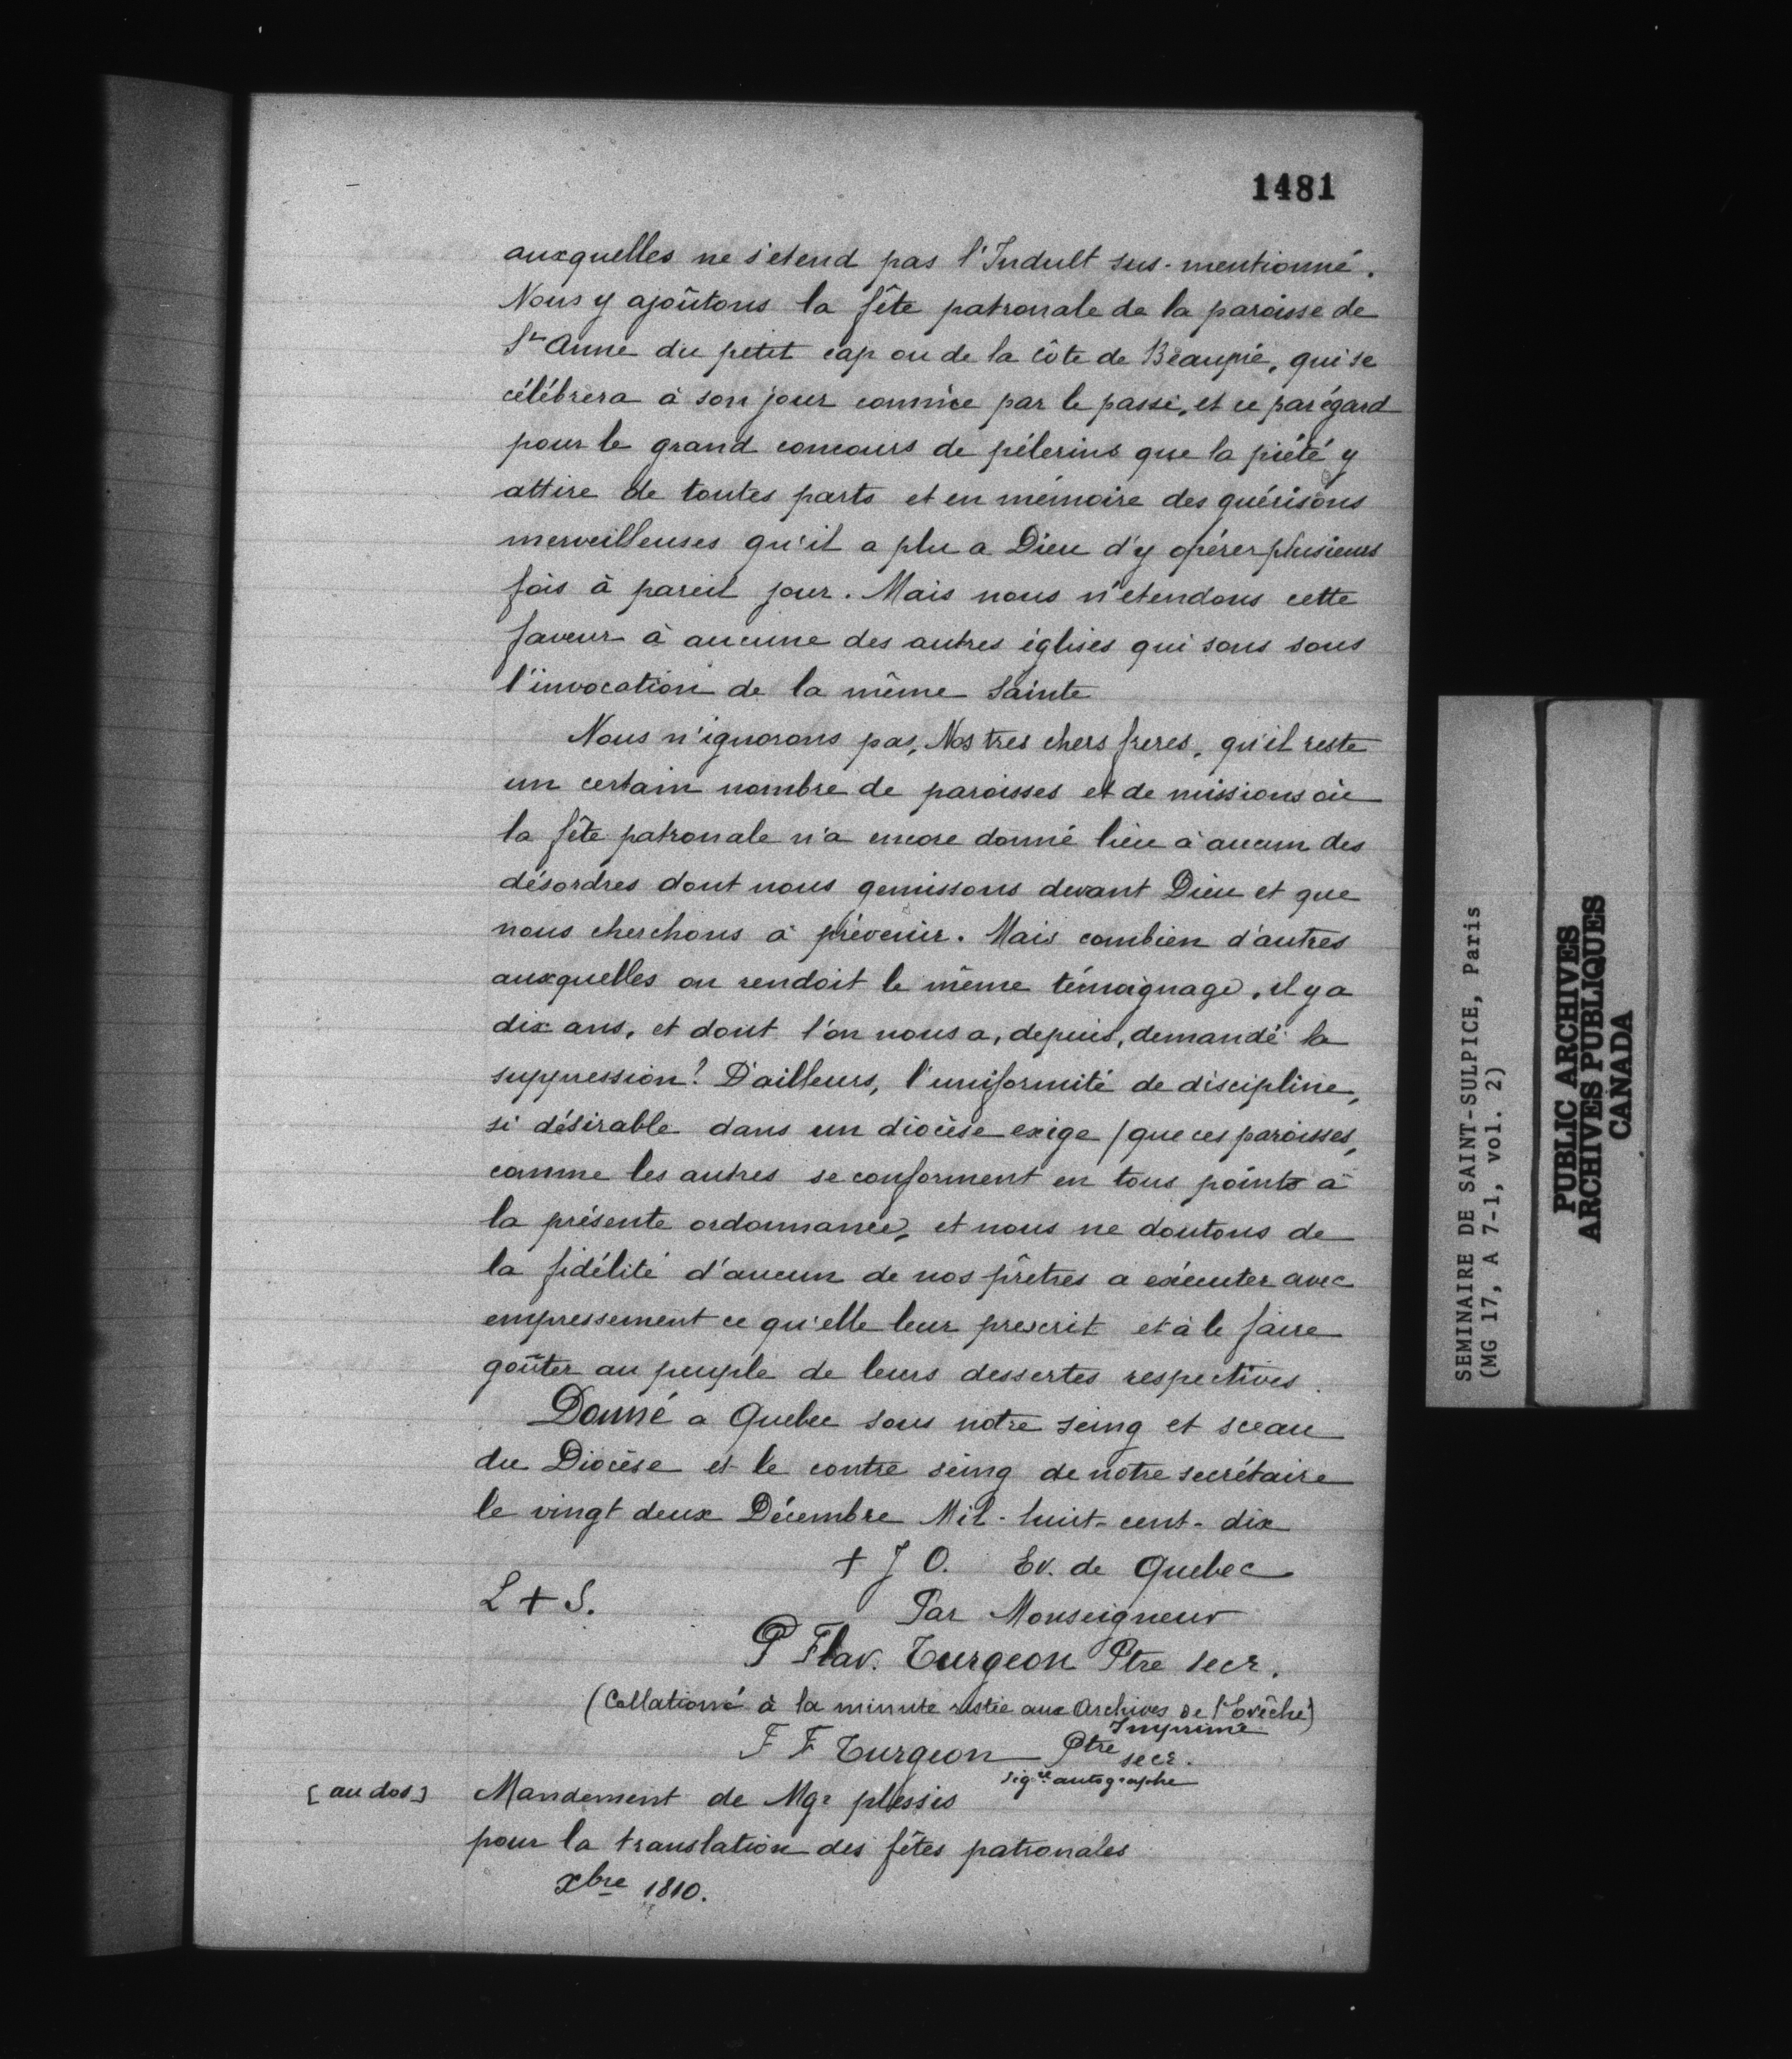 1481
auxquelles ne s'etend pas l'Indult sus-mentionné.
Nous y ajoûtons la fête patronale de la paroisse de
Ste Anne du petit cap ou de la Côte de Beaupré, qui se
célébrera à son jour comme par le passé, et ce par égard
pour le grand concours de pélerins que la piété y
attire de toutes parts et en mémoire des guérisons
merveilleuses qu'il a plu a Dieu d'y opérer plusieurs
fois à pareil jour. Mais nous n'etendons cette
faveur à aucune des autres églises qui sons sous
l'invocation de la même Sainte
Nous n'ignorons pas, Nos tres chers freres, qu'il reste
un certain nombre de paroisses et de missions où
la fête patronale n'a encore donné lieu à aucun des
désordres dont nous gemissons devant Dieu et que
nous cherchons à prévenir. Mais combien d'autres
auxquelles on rendoit le même témoignage, il y a
dix ans, et dont l'on nous a, depuis, demandé la
suppression? D'ailleurs, l'uniformité de discipline,
si désirable dans un diocèse exige / que ces paroisses,
comme les autres se conforment en tous points à
la présente ordonnance, et nous ne doutons de
la fidélité d'aucun de nos prêtres a exécuter avec
empressement ce qu'elle leur prescrit et à le faire
goûter au peuple de leurs dessertes respectives.
Donné a Quebec sous notre seing et sceau
du Diocèse et le contre seing de notre secrétaire
le vingt deux Décembre Mil-huit-cent-dix
+ J O. Ev. de Quebec
L + S.
Par Monseigneur
P Flav. Turgeon Ptre secr.
(Collationné à la minute restée aux Archives de l'Evêché)
Imprimé
F F Turgeon Ptre secr.
sigre autographe
[au dos] Mandement de Mgr plessis
pour la translation des fêtes patronales
xbre 1810.
SEMINAIRE DE SAINT-SULPICE, Paris
(MG 17, A 7-1, vol. 2)
PUBLIC ARCHIVES
ARCHIVES PUBLIQUES
CANADA